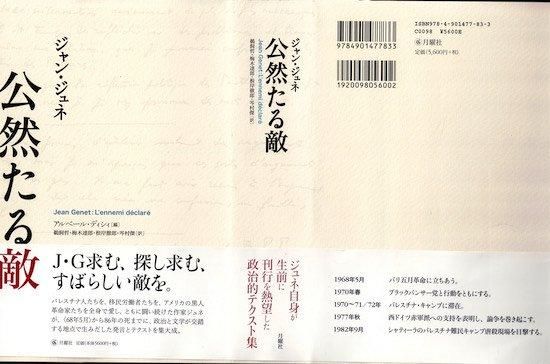 ジャン・ジュネ
公然たる敵
Jean Genet: L'ennemi déclaré
アルベール・ディシィ[編]
鵜飼哲・梅木達郎・根岸徹郎・岑村傑[訳]
J・G求む、探し求む、
すばらしい敵を。
パレスチナ人たちを、移民労働者たちを、アメリカの黒人
革命家たちを全身で愛し、ともに闘い続けた作家ジュネ
が、〈68年5月〉から86年の死まで、政治と文学が交錯
する地点で生みだした発言とテクストを集大成。
月曜社 定価(5,600円+税)
ジャン・ジュネ
公然たる敵
Jean Genet: L'ennemi déclaré
鵜飼哲・梅木達郎・根岸徹郎・岑村傑[訳]
ジュネ自身が
生前に
刊行を熱望した
政治的テクスト集
月曜社
9784901477833
1920098056002
ISBN978-4-901477-83-3
C0098 ¥5600E
月曜社
定価(5,600円+税)
1968年5月 パリ五月革命に立ちあう。
1970年春 ブラックパンサー党と行動をともにする。
1970〜71/72年 パレスチナ・キャンプに滞在。
1977年秋 西ドイツ赤軍派への支持を表明し、論争を巻き起こす。
1982年9月 シャティーラのパレスチナ難民キャンプ虐殺現場を目撃する。